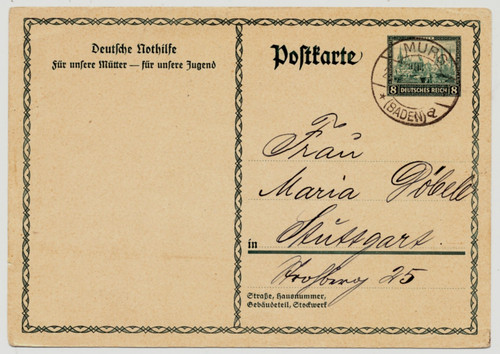 Deutsche Nothilfe
Für unsere Mütter — für unsere Jugend
Postkarte
MURG
(BADEN)
8 DEUTSCHES REICH 8
Frau
Maria Göbele
in Stuttgart.
25
Straße, Hausnummer,
Gebäudeteil, Stockwerk